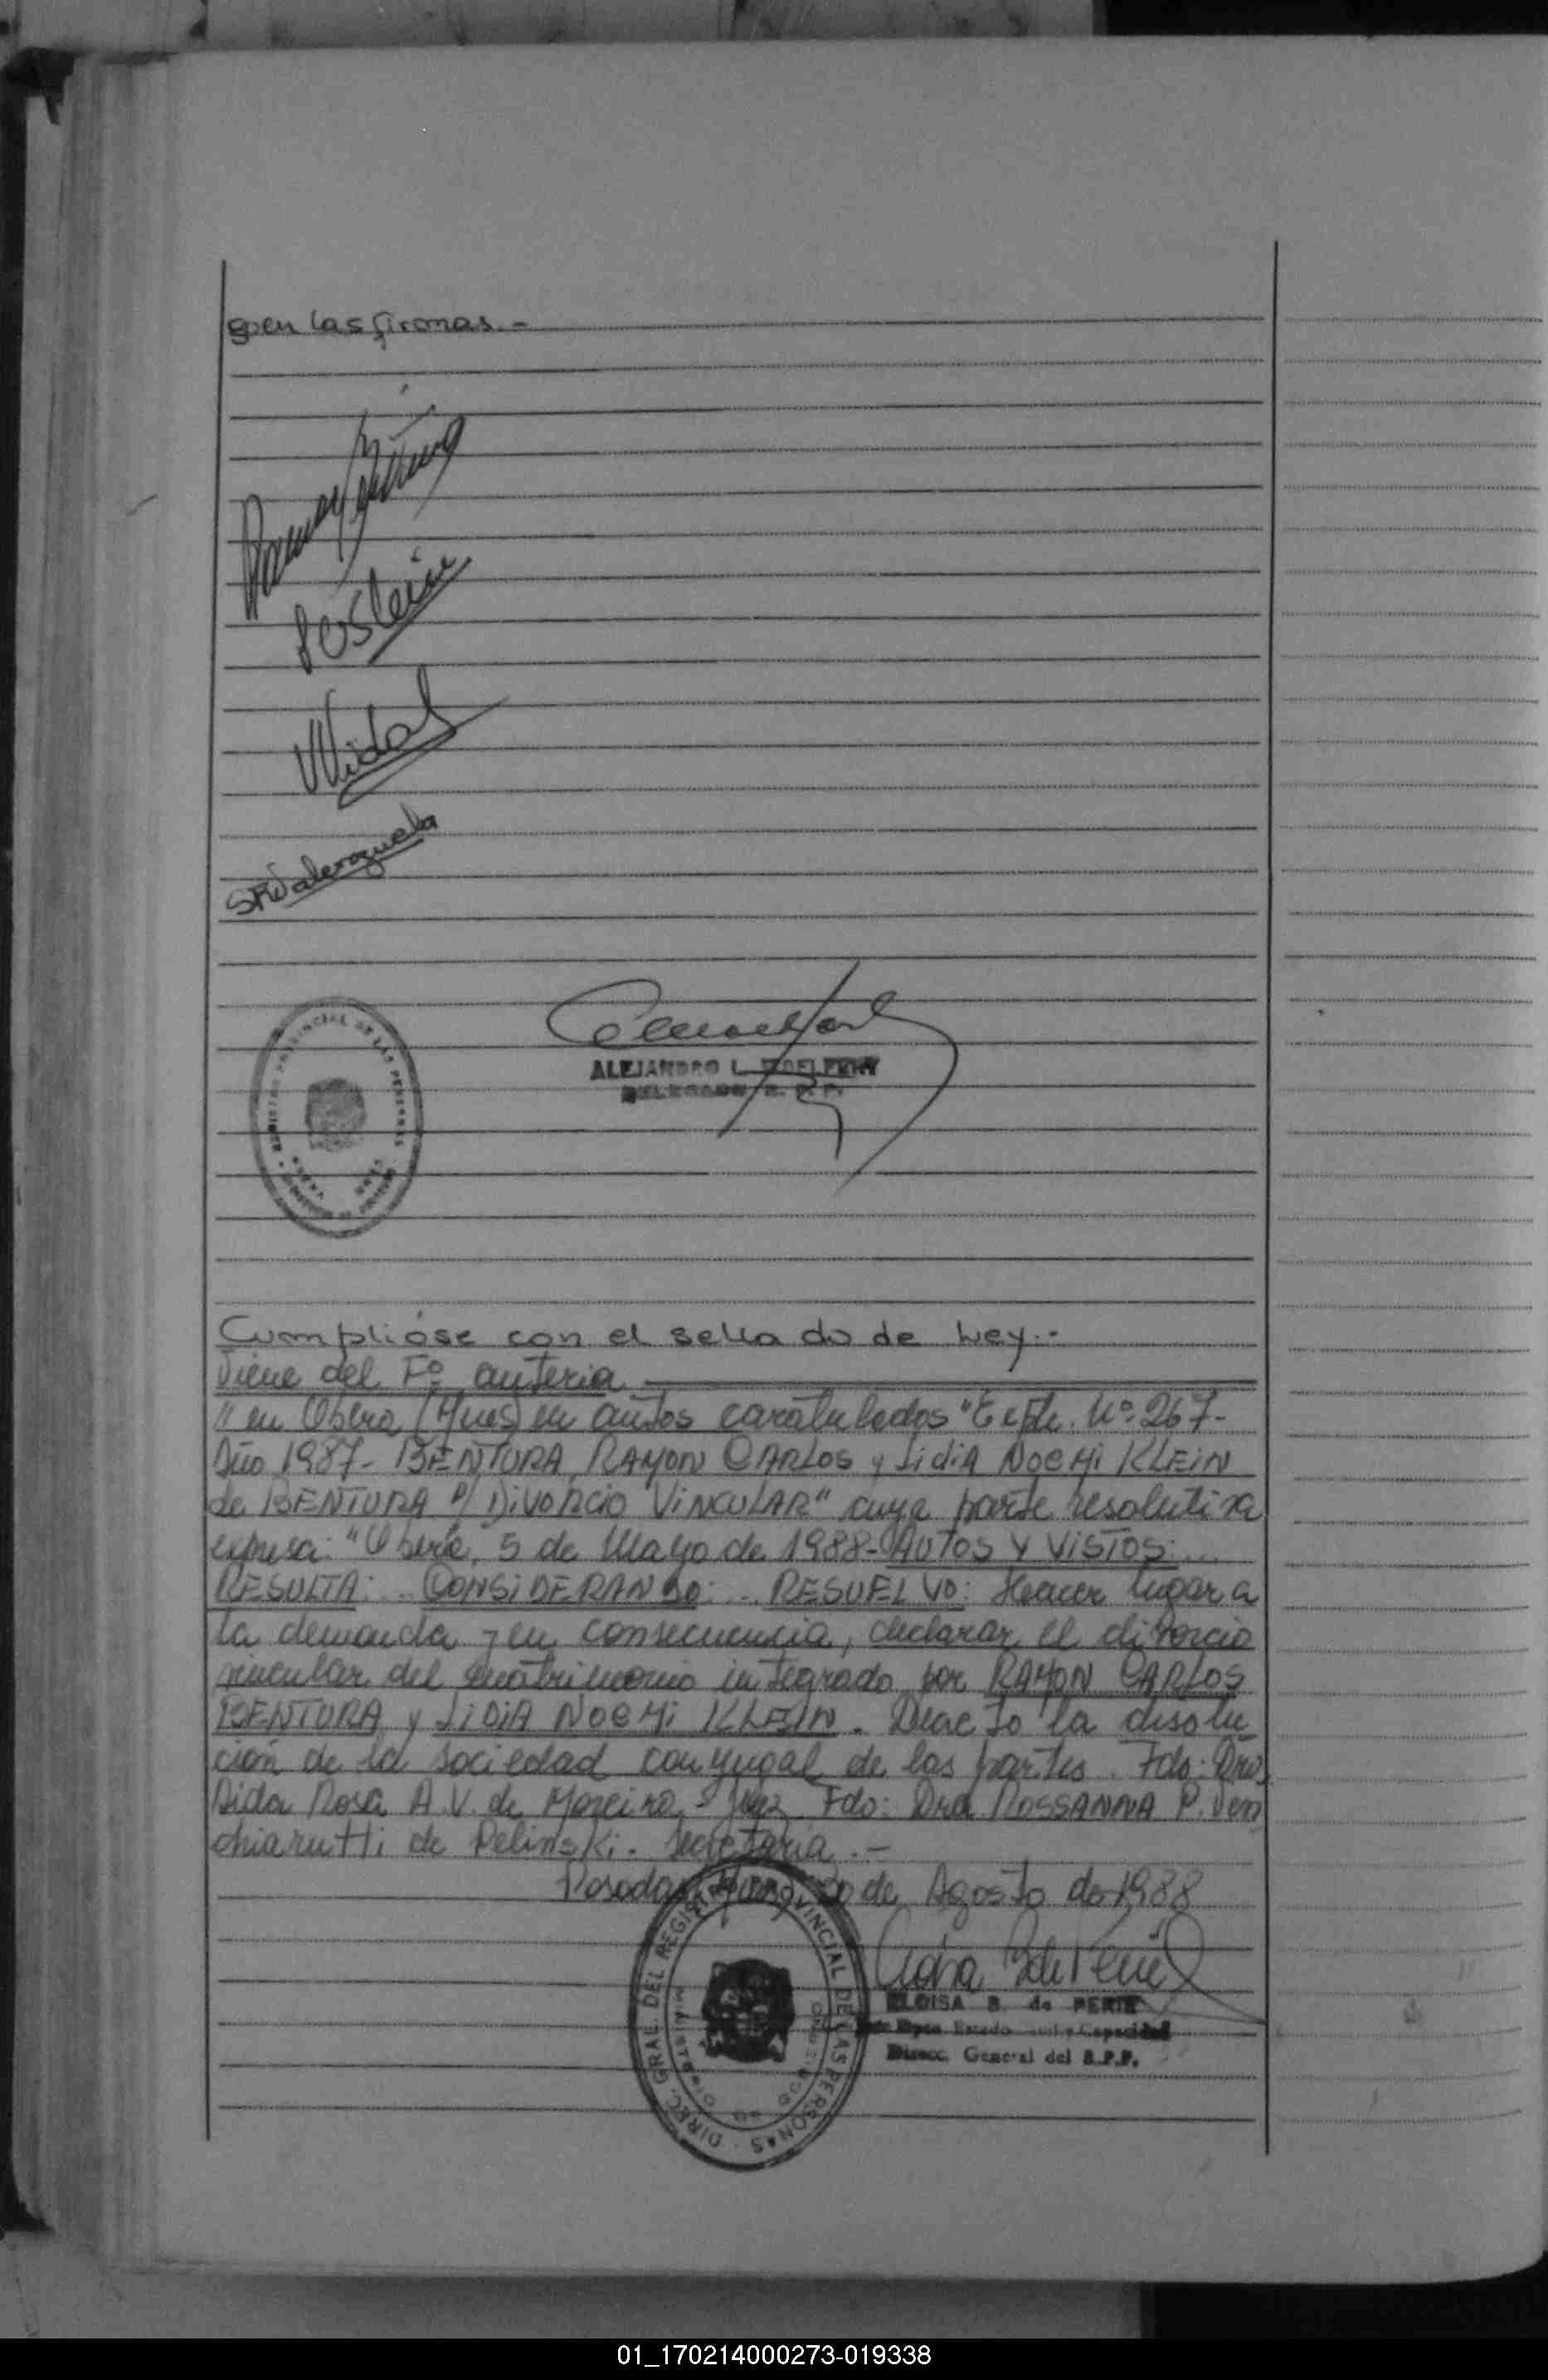 gen las firmas.-
Vidal
SRValenzuela
REGISTRO PROVINCIAL DE LAS PERSONAS
ALEJANDRO L.
DELEGADO R. P. P.
Cumplióse con el sellado de Ley.-
Viene del Fº anterior
"en Oberá (Mnes) en autos caratulados "Expte. Nº 267-
Año 1987- BENTURA, RAMON CARLOS y LidiA NOEMi KLEIN
de BENTURA P/ DiVORCiO ViNCULAR" cuya parte resolutiva
expresa: "Oberá, 5 de Mayo de 1988- AUTOS Y ViSTOS:...
RESULTA:... CONSiDERANDO:... RESUELVO: Hacer lugar a
la demanda y en consecuencia, declarar el divorcio
vincular del matrimonio integrado por RAMON CARLOS
BENTURA y LiDiA NOEMi KLEIN. Decreto la disolu
ción de la sociedad conyugal de las partes. Fdo: Dra
Aida Rosa A.V. de Moreira - Juez Fdo: Dra ROSSANNA P. Ven
chiarutti de Pelinski. Secretaria.-
Posadas (Mnes) 30 de Agosto de 1988
DIREC. GRAL. DEL REGISTRO PROVINCIAL DE LAS PERSONAS
MINISTERIO DE GOBIERNO
ELOISA B. de PERIE
Dpto. Estado Civil y Capacidad
Direcc. General del R.P.P.
01_170214000273-019338